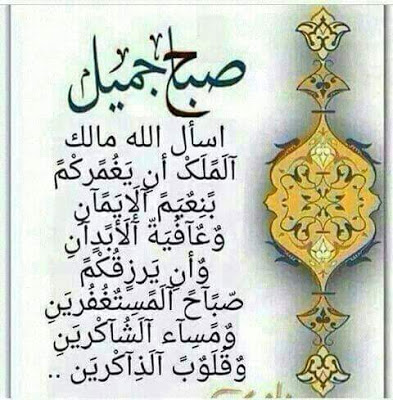 صباح جميل
اسأل الله مالك
آلَمًلَکْ أن يَغُمًرکْمً
بًنِعٌيَمً آلَإيَمًآنِ
وٌعٌآفُيَةّ آلَأبًدٍآنِ
وٌأن يَرزٍقُکْمً
صّبًآحً آلَمًسِتٌغُفُريَنِ
وٌمًسِآء آلَشُآکْريَنِ
وٌقُلَوٌبً آلَذِآکْريَنِ ..